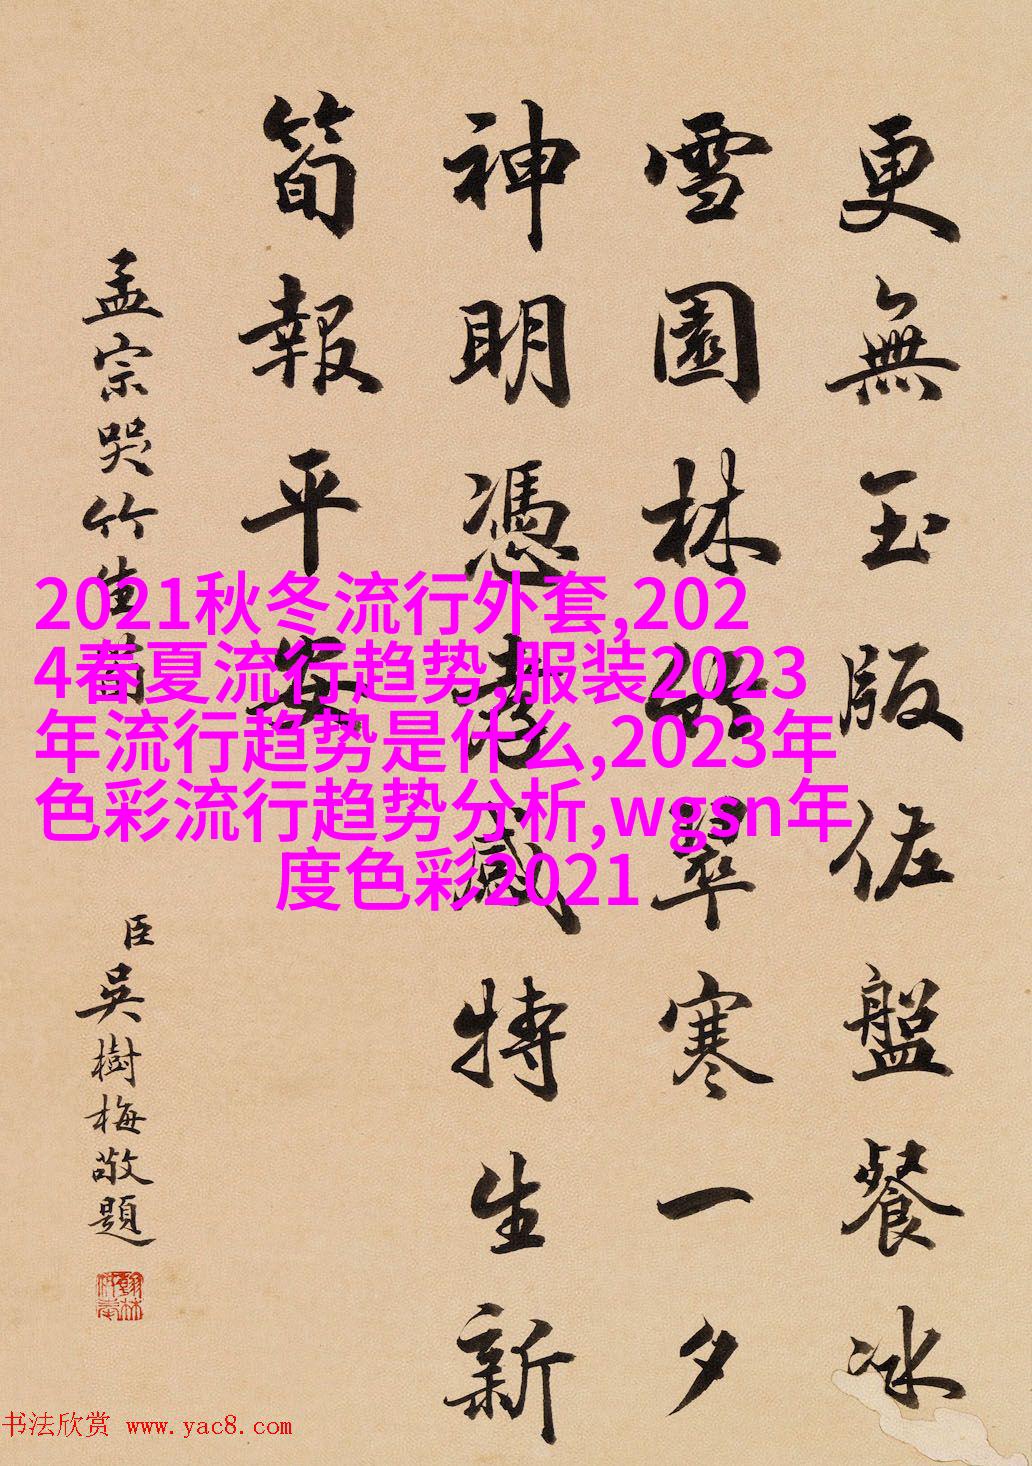 更無玉版佐盤餐冰
雪園林翠寒一夕
神明憑感特生新
筍報平安
孟宗哭竹生筍
臣吳樹梅敬題
2021秋冬流行外套,202
4春夏流行趋势,服装2023
年流行趋势是什么,2023年
色彩流行趋势分析,wgsn年
度色彩2021
书法欣赏 www.yac8.com